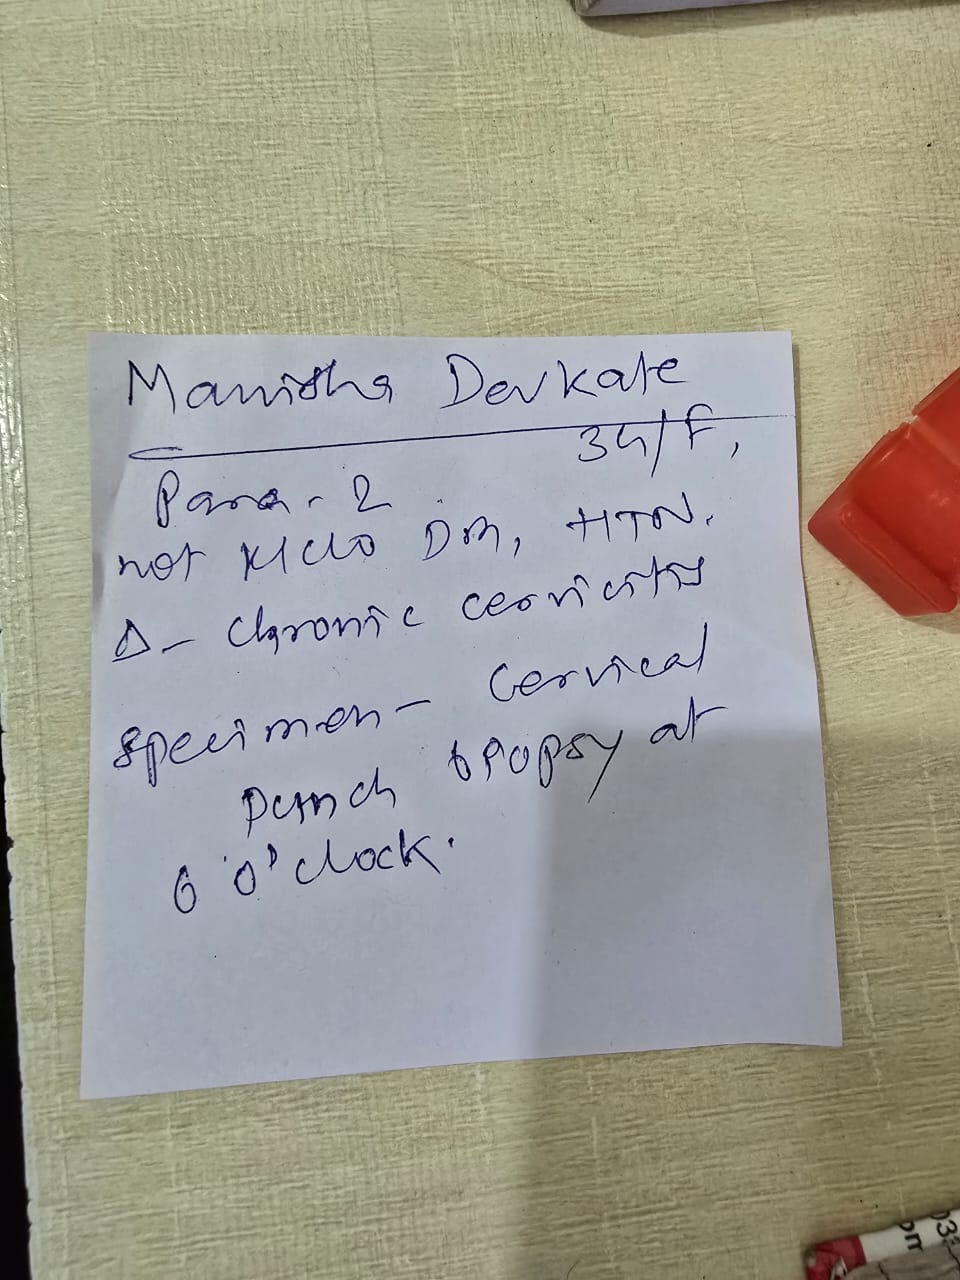 Manisha Devkate
34/F,
Para - 2
not K/C/O DM, HTN.
Δ - Chronic cervicitis
specimen - Cervical
punch biopsy at
6 o'clock.
03
om